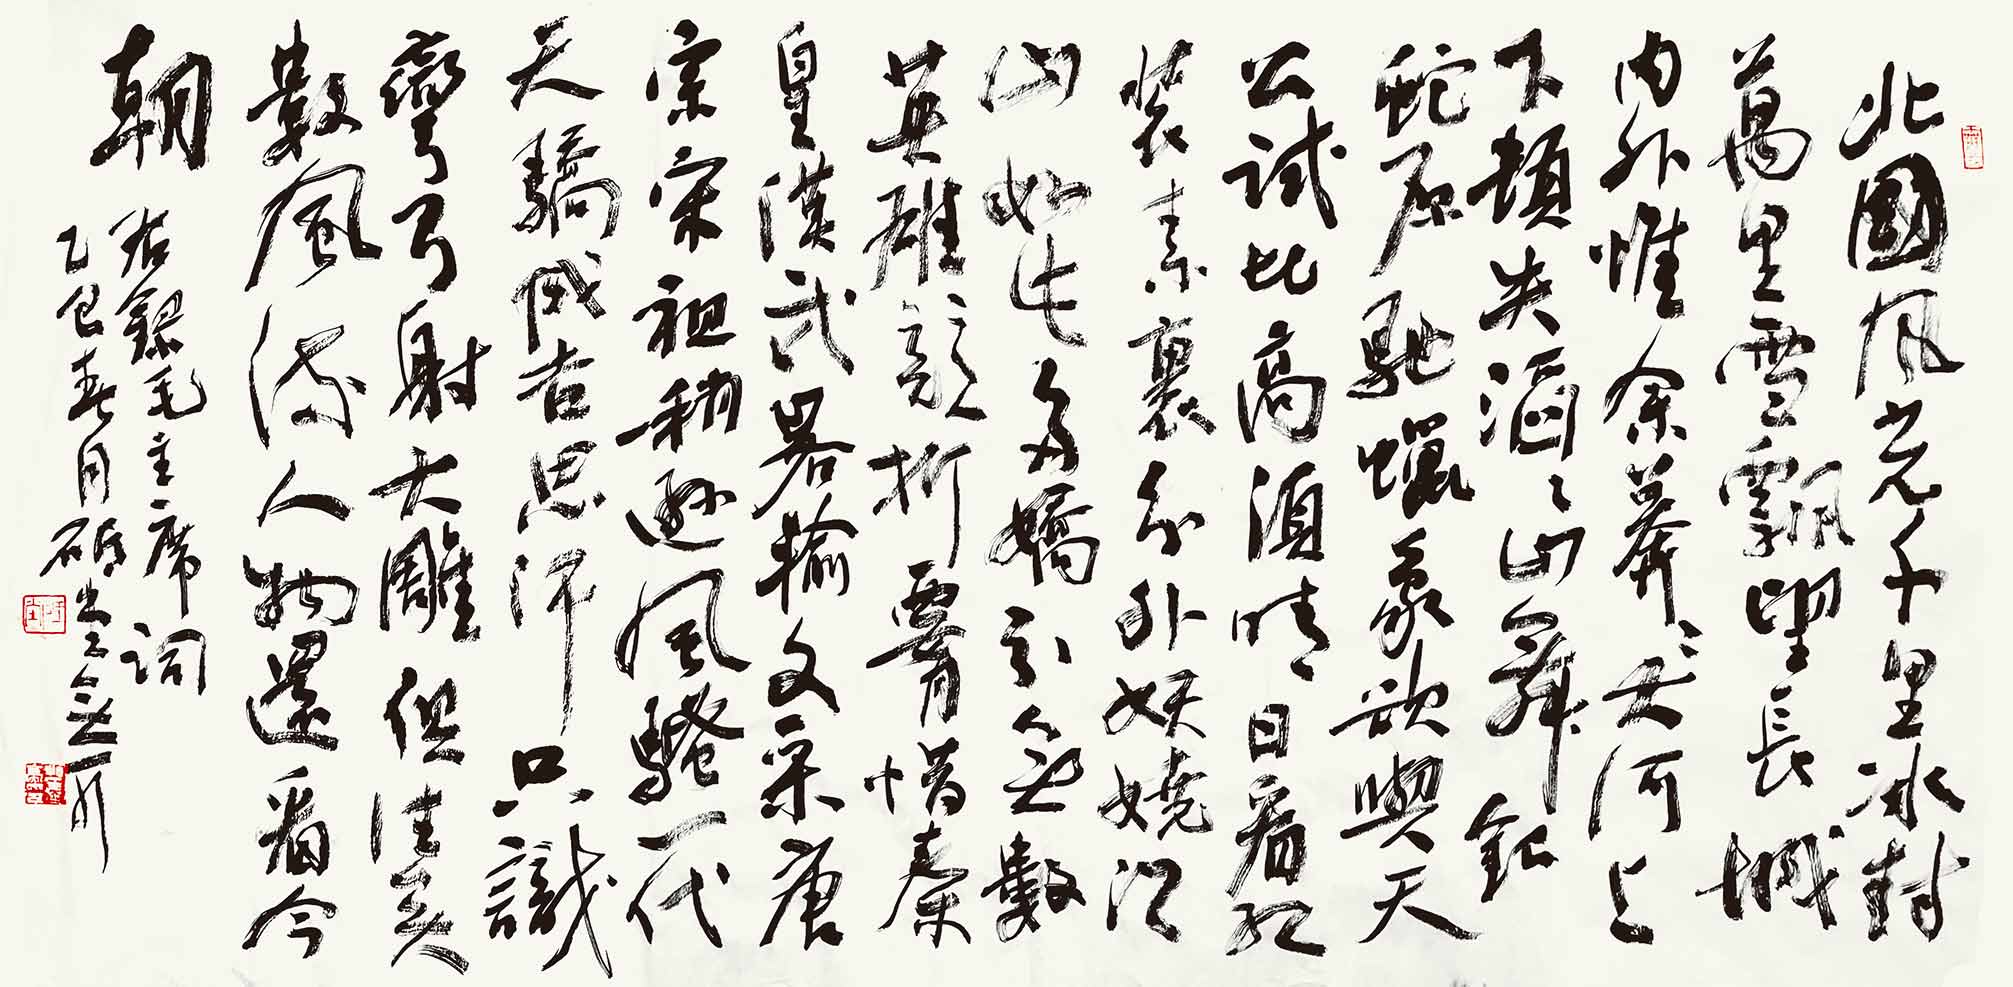 北國風光千里冰封
萬里雪飄望長城
内外惟余莽々大河上
下頓失滔々山舞銀
蛇原馳蠟象欲與天
公試比高須晴日看紅
裝素裹分外妖嬈江
山如此多嬌引無數
英雄競折腰惜秦
皇漢武畧輸文采唐
宗宋祖稍遜風騷一代
天驕成吉思汗只識
彎弓射大雕俱往矣
數風流人物還看今
朝
右錄毛主席詞
乙巳春月